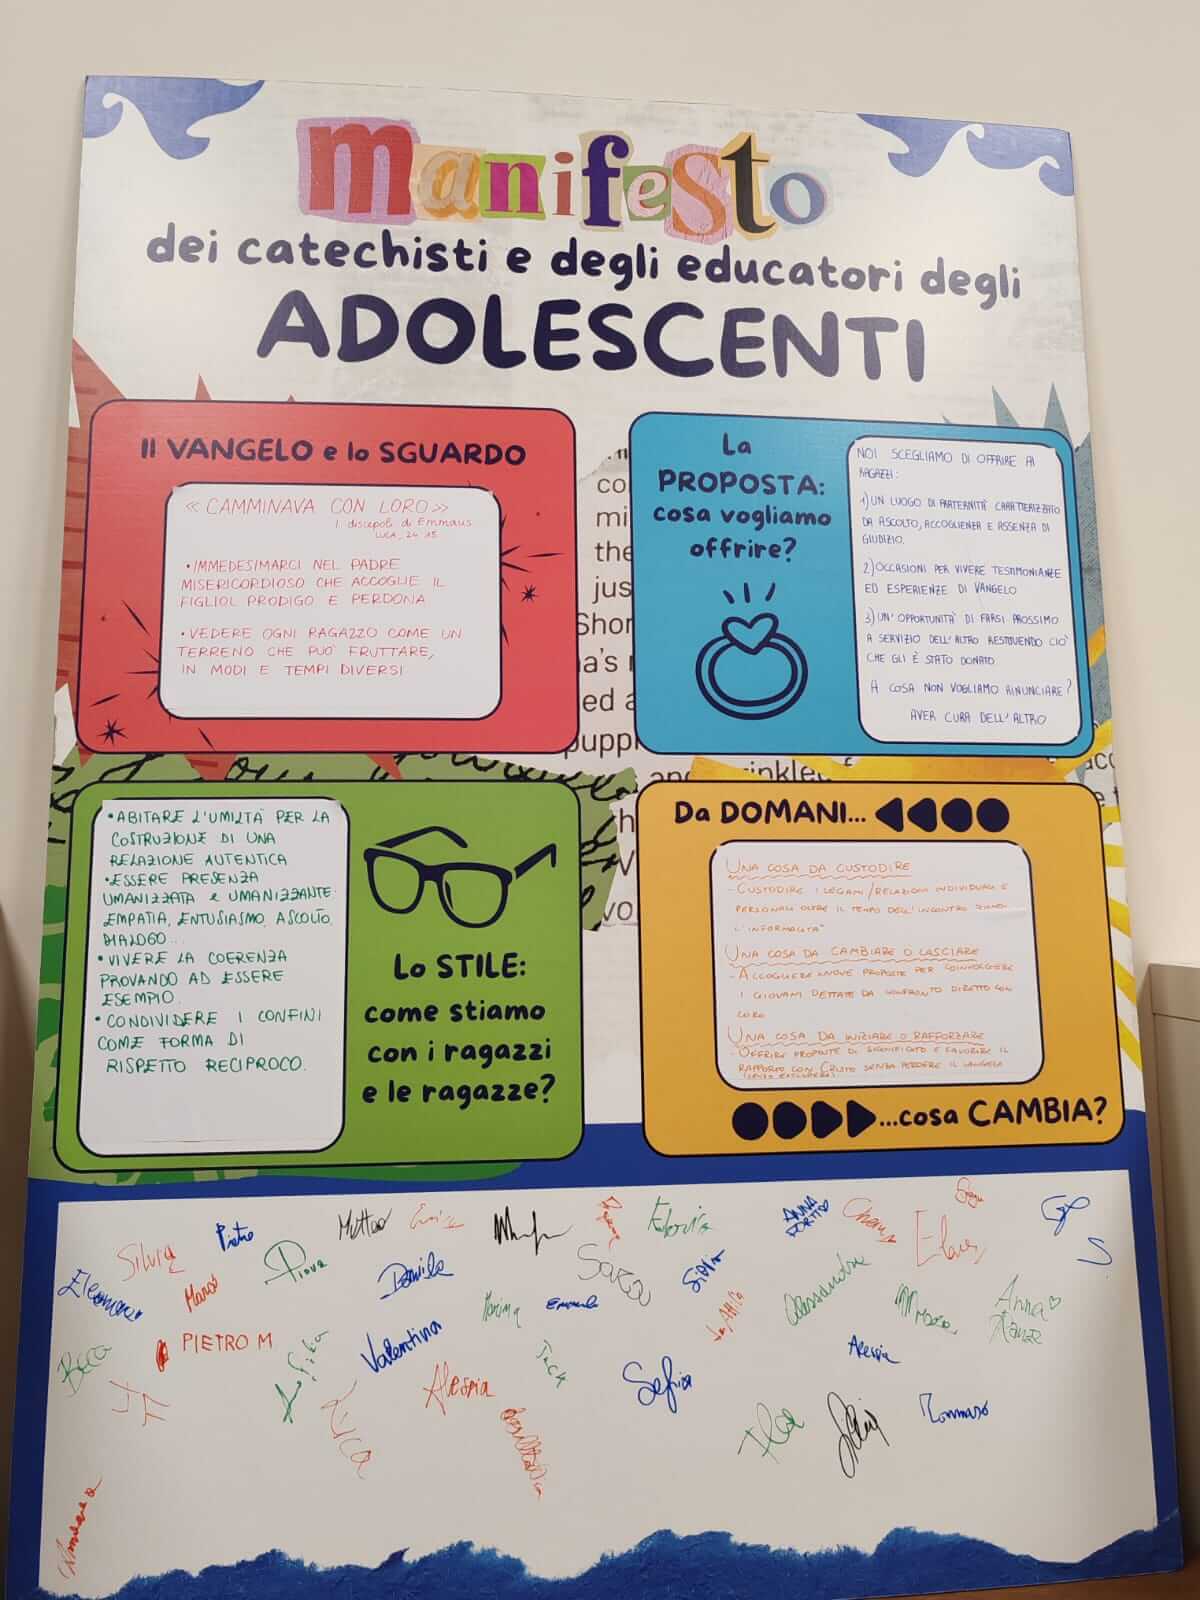 manifesto
dei catechisti e degli educatori degli
ADOLESCENTI
Il VANGELO e lo SGUARDO
« CAMMINAVA CON LORO »
I discepoli di Emmaus
LUCA, 24 15
• IMMEDESIMARCI NEL PADRE
MISERICORDIOSO CHE ACCOGLIE IL
FIGLIOL PRODIGO E PERDONA
• VEDERE OGNI RAGAZZO COME UN
TERRENO CHE PUO' FRUTTARE,
IN MODI E TEMPI DIVERSI
La
PROPOSTA:
cosa vogliamo
offrire?
NOI SCEGLIAMO DI OFFRIRE AI
RAGAZZI:
1) UN LUOGO DI FRATERNITÀ CARATTERIZZATO
DA ASCOLTO, ACCOGLIENZA E ASSENZA DI
GIUDIZIO.
2) OCCASIONI PER VIVERE TESTIMONIANZE
ED ESPERIENZE DI VANGELO
3) UN' OPPORTUNITÀ DI FARSI PROSSIMO
A SERVIZIO DELL'ALTRO RESTITUENDO CIÒ
CHE GLI È STATO DONATO
A COSA NON VOGLIAMO RINUNCIARE?
AVER CURA DELL'ALTRO
• ABITARE L'UMILTÀ PER LA
COSTRUZIONE DI UNA
RELAZIONE AUTENTICA
• ESSERE PRESENZA
UMANIZZATA e UMANIZZANTE:
EMPATIA, ENTUSIASMO, ASCOLTO,
DIALOGO...
• VIVERE LA COERENZA
PROVANDO AD ESSERE
ESEMPIO.
• CONDIVIDERE I CONFINI
COME FORMA DI
RISPETTO RECIPROCO.
Lo STILE:
come stiamo
con i ragazzi
e le ragazze?
Da DOMANI...
UNA COSA DA CUSTODIRE
- CUSTODIRE I LEGAMI/RELAZIONI INDIVIDUALI E
PERSONALI OLTRE IL TEMPO DELL'INCONTRO
L'INFORMALITA'
UNA COSA DA CAMBIARE O LASCIARE
- ACCOGLIERE NUOVE PROPOSTE PER COINVOLGERE
I GIOVANI DETTATE DA CONFRONTO DIRETTO CON
LORO
UNA COSA DA INIZIARE O RAFFORZARE
- OFFRIRE PROPOSTE DI SIGNIFICATO E FAVORIRE IL
RAPPORTO CON CRISTO SENZA PERDERE IL VANGELO
...cosa CAMBIA?
Silvia
Pietro
Matteo
ANNA
Eleonora
Marco
Piova
Daniela
Sara
Giulia
Elena
Alessandra
Anna
Marina
Emanuela
Beca
PIETRO M
Valentina
Jack
Alessia
Alessia
Sofia
Luca
Tommaso